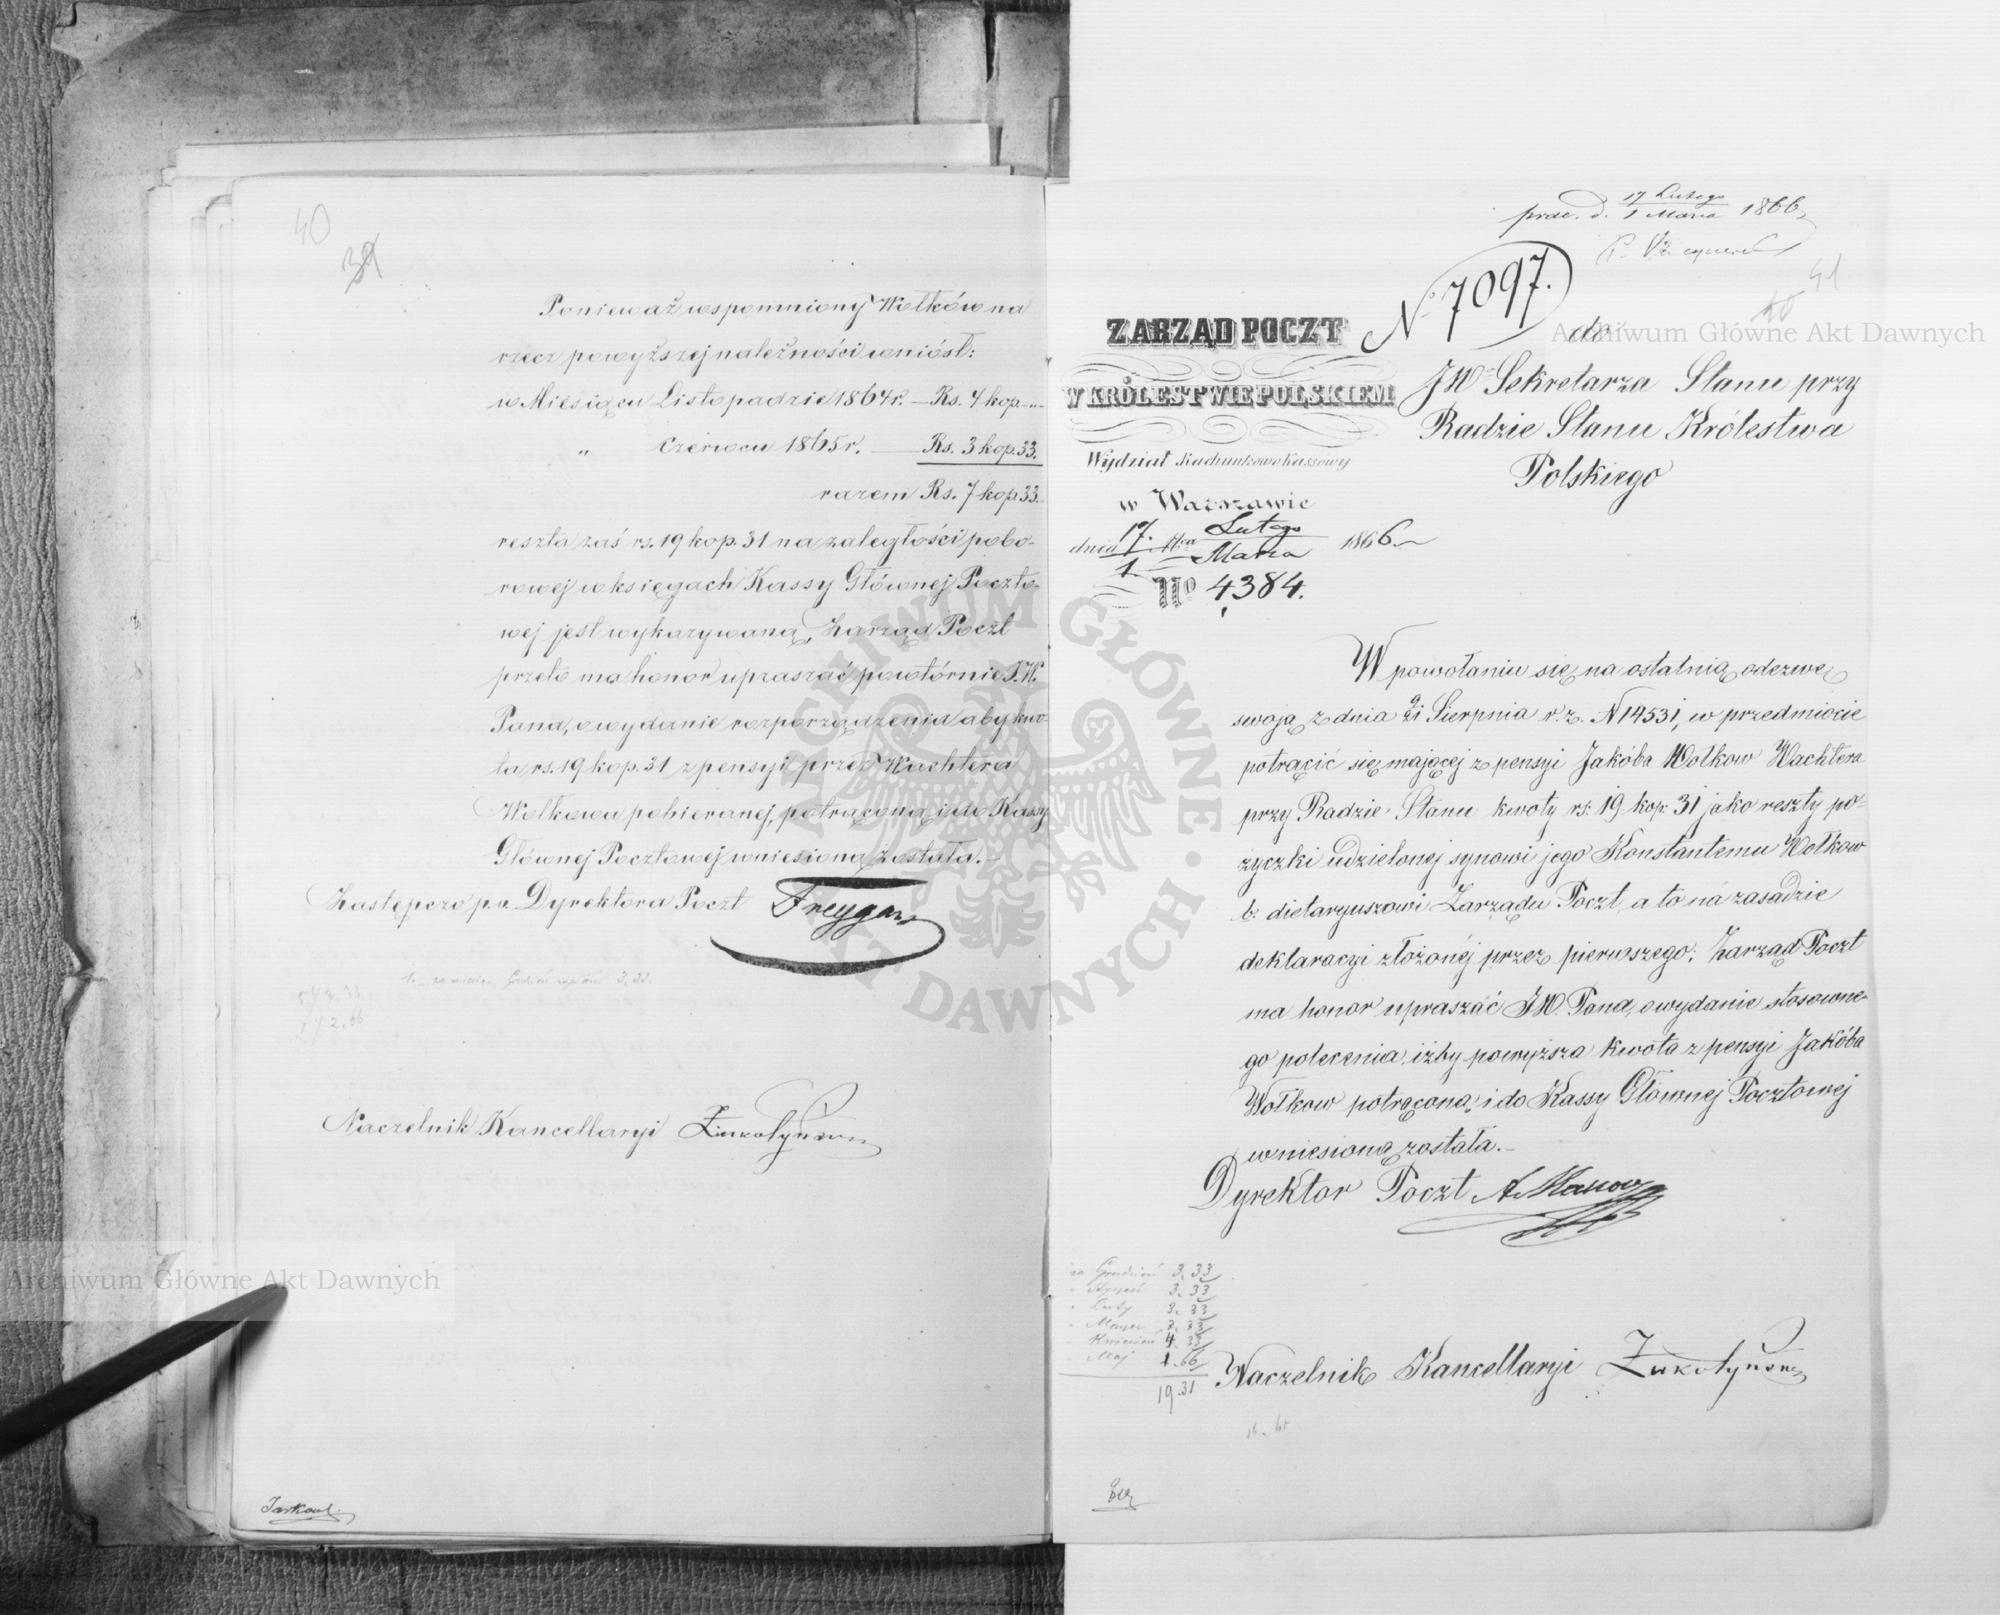 40
39
Ponieważ wspomniony Wołków na
rzecz powyższej należności wniósł:
w Miesiącu Listopadzie 1864 r. — Rs. 4 kop. „
„ Czerwcu 1865 r. — Rs. 3 kop. 33.
razem Rs. 7 kop. 33.
reszta zaś rs. 19 kop. 31 na zaległości pobo-
rowej w księgach Kassy Głównej Poczto-
wej jest wykazywaną, Zarząd Poczt
przeto ma honor upraszać powtórnie J.W.
Pana, o wydanie rozporządzenia aby kwo-
ta rs. 19 kop. 31 z pensyi przez Wachtera
Wołkowa pobieranej, potrąconą i do Kassy
Głównej Pocztowej wniesioną została.—
Zastępca p.o. Dyrektora Poczt Freygang
3.33
2.66
Naczelnik Kancellaryi
17 Lutego
1 Marca 1866
41
40
N. 7097.
ZARZĄD POCZT
W KRÓLESTWIE POLSKIEM
Wydział Rachunkowo Kassowy
w Warszawie
dnia 17. Lutego
1. Marca 1866
No 4384.
do
JW. Sekretarza Stanu przy
Radzie Stanu Królestwa
Polskiego
W powołaniu się na ostatnią odezwę
swoją z dnia 9/21 Sierpnia r. z. N 14531, w przedmiocie
potrącić się mającej z pensyi Jakóba Wołkow Wachtera
przy Radzie Stanu kwoty rs. 19 kop. 31 jako reszty po-
życzki udzielonej synowi jego Konstantemu Wołkow
b. dietaryuszowi Zarządu Poczt, a to na zasadzie
deklaracyi złożonéj przez pierwszego; Zarząd Poczt
ma honor upraszać JW. Pana, o wydanie stosowne-
go polecenia, iżby powyższa kwota z pensyi Jakóba
Wołkow potrąconą, i do Kassy Głównej Pocztowej
wniesioną została.—
Dyrektor Poczt
za Grudzień 3.33
„ Styczeń 3.33
„ Luty 3.33
„ Marzec 3.33
„ Kwiecień 4.33
„ Maj 1.66
19.31
Naczelnik Kancellaryi
Archiwum Główne Akt Dawnych
Archiwum Główne Akt Dawnych
ARCHIWUM GŁÓWNE AKT DAWNYCH